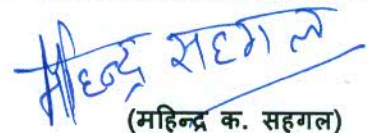 महिन्द्र सहगल
(महिन्द्र क. सहगल)